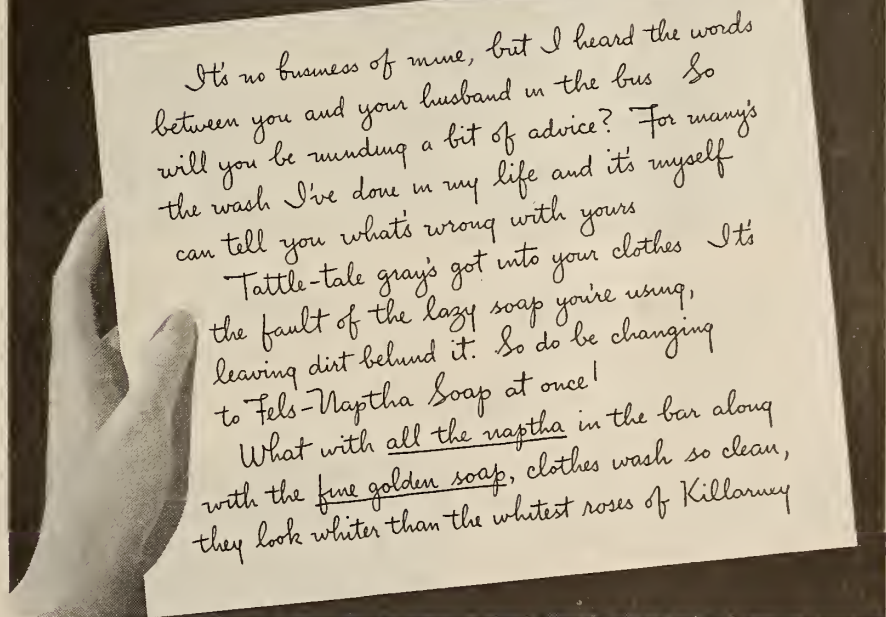 It's no business of mine, but I heard the words
between you and your husband in the bus So
will you be minding a bit of advice? For many's
the wash I've done in my life and it's myself
can tell you what's wrong with yours
Tattle-tale gray's got into your clothes It's
the fault of the lazy soap you're using,
leaving dirt behind it. So do be changing
to Fels-Naptha Soap at once!
What with all the naptha in the bar along
with the fine golden soap, clothes wash so clean,
they look whiter than the whitest roses of Killarney